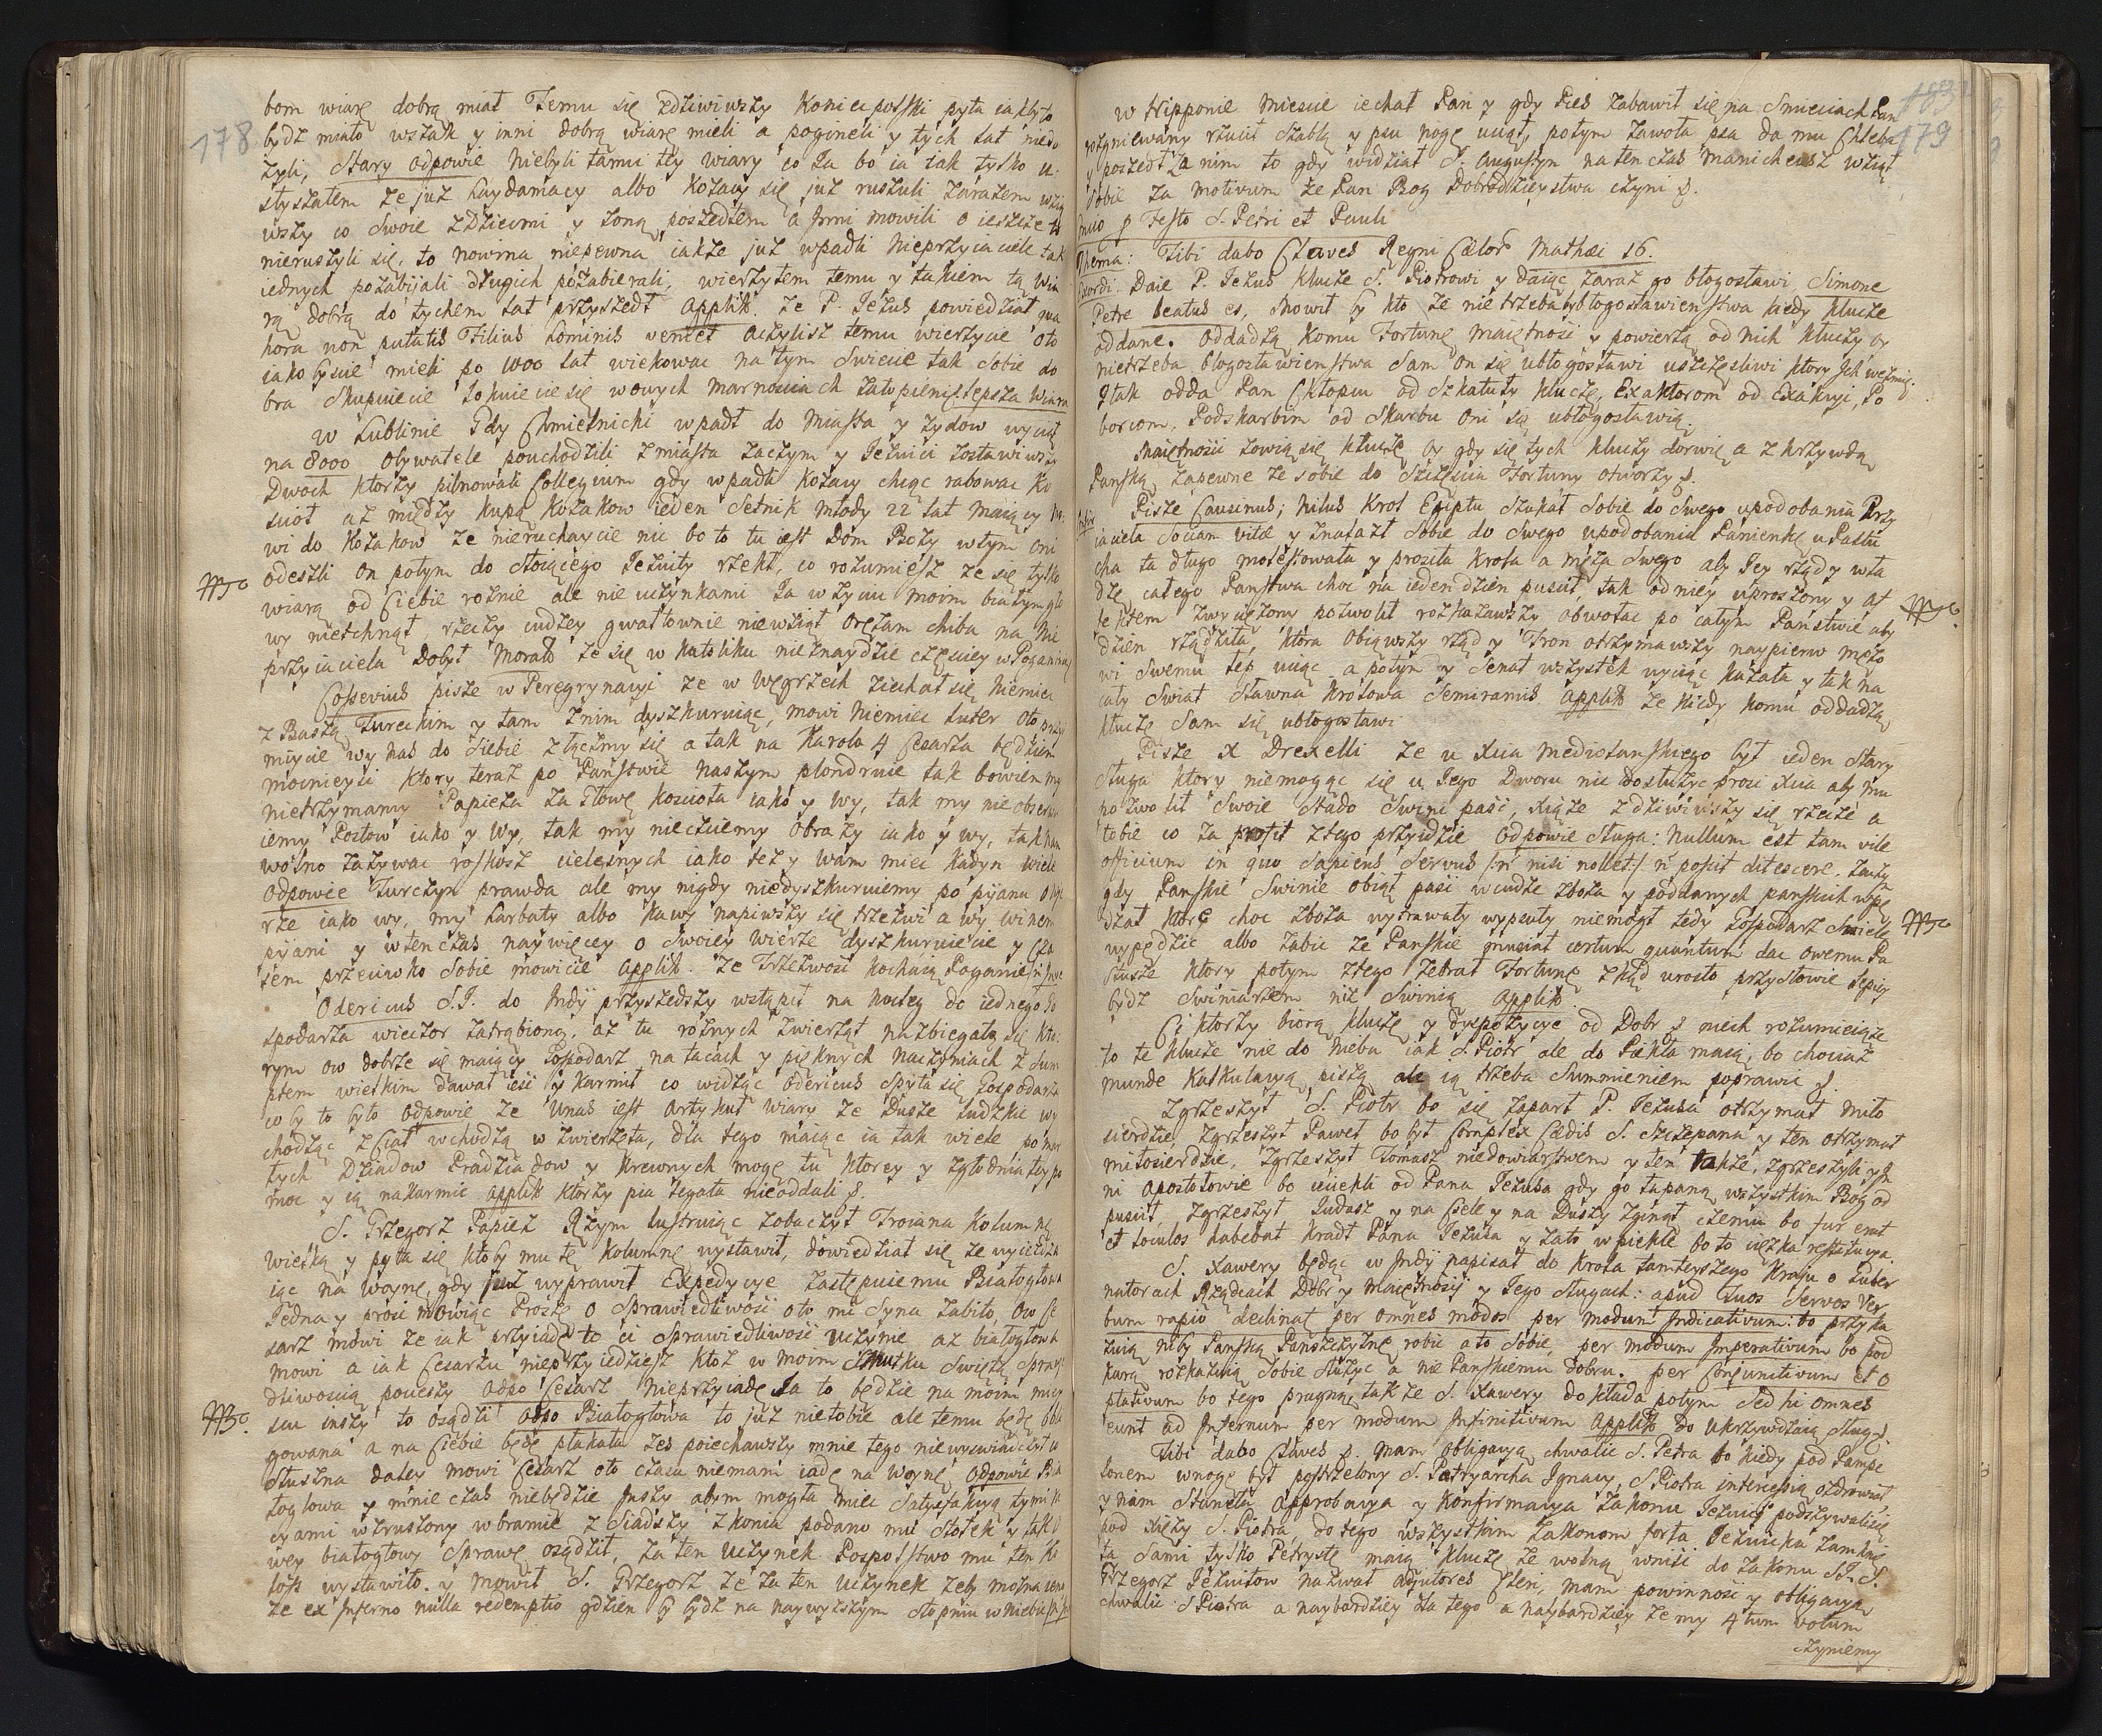 178
bom wiarę dobrą miał Temu się zdziwiwszy Koniecpolski pyta iakby to
bydź miało wszak y inni dobrą wiarę mieli a poginęli y tych lat niedo
żyli, Stary odpowie niebyli tamci tey wiary co Ja bo ia jak tylko u
słyszałem że już Haydamacy albo Kozacy się już ruszyli zarazem wziąw
wszy co Swoie z Dziećmi y żoną poszedłem a Jnni mowili o ieszcze to
nieruszyli się, to nowina niepewna, iakże już wpadli Nieprzyiaciele tak
iednych pozabijali drugich pozabierali, wierzyłem temu y takiem tą wia
rą dobrą do tychem lat przyszedł applik. że P. Jezus powiedział qua
hora non putatis Filius hominis veniet aczylisz temu wierzycie oto
iako byscie mieli po 1000 lat wiekować na tym Swiecie tak Sobie do
bra Skupuiecie Topniecie się w owych marnościach zatopieni lepsza Wiara
W Lublinie Gdy Chmielnicki wpadł do Miasta y żydow wyciął
na 8000 obywatele pouchodzili z miasta zaczym y Jezuici zostawiwszy
Dwoch ktorzy pilnowali Collegium gdy wpadli Kozacy chcąc rabować Ko
scioł aż między kupą Kozakow ieden Setnik młody 22 lat maiący mo
wi do Kozakow że nieruchaycie nic bo to tu iest Dom Boży wtym oni
odeszli on potym do stoiącego Jezuity rzekł, co rozumiesz że się tylko
wiarą od Ciebie rożnie ale nie uczynkami Ja w życiu moim białymgło
wy nietchnął rzeczy cudzey gwałtownie niewziął orężam chiba na Nie
przyiaciela Dobył Morał że się w katoliku nieznaydzie częściey w Poganinie
Cossevius pisze w Peregrynacyi że w Węgrzech ziechał się Niemiec
z Baszą Tureckim y tam znim dyszkuruiąc, mowi Niemiec Luter oto przy
miycie wy nas do siebie złączmy się a tak na Karola 4 Cesarza będziem
mocnieysi ktory teraz po Państwie naszym plondruie tak bowiem my
nietrzymamy Papieża za Głowę kościoła iako y wy, tak my nie obserwu
iemy Postow iako y wy, tak my nieczciemy obrazy iako y wy, tak nam
wolno zażywać roskosz cielesnych iako też y wam mieć kadyn wiele
odpowie Turczyn prawda ale my nigdy niedyszkuruiemy po pijanu o wie
rze iako wy, my Harbaty albo Kawy napiwszy się trzeźwi a wy winem
pijani y wtenczas naywięcey o swoiey wierze dyszkuruiecie y Cza
sem przeciwko Sobie mowicie applik. że Trzeźwość kochaią Poganie
Odericus S.J. do Jndÿ przyszedszy wstąpił na nocleg do iednego Go
spodarza wieczor zatrąbiono, aż tu rożnych zwierząt nazbiegało się kto
rym ow dobrze się maiący Gospodarz na tacach y pięknych naczyniach z Sum
ptem wielkim dawał ieść y karmił co widząc Odericus Spyta się Gospodarza
co by to było odpowie że Unas iest artykuł wiary że Dusze ludzkie wy
chodząc z Ciał wchodzą w zwierzęta, dla tego maiąc ia tak wiele pomar
tych Dziadow Pradziadow y krewnych mogę tu ktorey y zgłodniałey po
moc y ią nakarmić applik ktorzy pia legata nieoddali &.
S. Grzegorz Papież Rzym lustruiąc zobaczył Troiana Kolumnę
Wielką y pyta się ktoby mu tę Kolumnę wystawił, dowiedział się że wyieżdża
iąc na Woynę, gdy już wyprawił Expedycye zastępuie mu Białogłowa
Jedna y prosi mowiąc Proszę o Sprawiedliwość oto mi Syna zabito, Ow Ce
sarz mowi że iak przyiadę to ci Sprawiedliwość uczynie aż białogłowa
mowi a iak Cesarzu nieprzyiedziesz ktoż w moim Smutku Swiętą Sprawie
dliwością pocieszy odpo Cesarz Nieprzyiadę Ja to będzie na moim miey
scu inszy to osądzi odpo Białogłowa to już nie tobie ale temu będę obli
gowana a na Ciebie będę płakała żeś poiechawszy mnie tego niewyswiadczył u
słuszna daley mowi Cesarz oto czasu niemam iadę na woynę, odpowie Bia
łogłowa y mnie czas niebędzie Jnszy abym mogła mieć Satysfakcyą tymi ra
cyami wzruszony w bramie z siadszy z konia podano mu Stołek y tak o
wey białogłowy Sprawę osądził, za ten uczynek Pospolstwo mu ten Ko
loss wystawiło. y mowił S. Grzegorz że za ten uczynek żeby można rzec
że ex Jnferno nulla redemptio gdzieby bydź na naywyższym stopniu w niebie
183
179
W Hipponie Miescie iechał Pan y gdy Pies zabawił się na Smieciach Pan
rozgniewany rzucił szablą y psu nogę uciął, potym zawoła psa da mu Chleba
y poszedł za nim to gdy widział S. Augustyn na ten czas Manicheusz wziął
Sobie za motivum że Pan Bog Dobrodzieystwa czyni &.
pro Festo S. Petri et Pauli
Thema: Tibi dabo Claves Regni Cælor Mathæi 16.
Exordi: Daie P. Jezus klucze S. Piotrowi y daiąc zaraz go błogosławi, Simone
Petre beatus es, Mowił by kto że nie trzeba błogosławieństwa kiedy klucze
oddane. Oddadzą komu Fortunę Maiętność y powierzą od nich kluczy oy
nietrzeba błogosławieństwa Sam on się ubłogosławi uszczęśliwi ktory Jch weźmie.
Jtak odda Pan Chłopcu od Szkatuły klucze, Exaktorom od exakcyi, Po
borcom, Podskarbim od Skarbu oni się ubłogosławią.
Maiętności zowią się klucze oy gdy się tych kluczy dorwie a z krzywdą
Pańską, zapewne że sobie do szczęścia Fortuny otworzy &.
Pisze Causinus; Nilus Krol Egiptu szukał Sobie do Swego upodobania Przy
iaciela Sociam vitæ y znalazł Sobie do Swego upodobania Panienkę u Pastu
cha ta długo molestowała y prosiła Krola a męża Swego aby Jey rząd y wła
dzę całego Państwa choc na ieden dzien puścił, tak od niey uproszony y af
fektem zwyciężony pozwolił rozkazawszy obwołać po całym Państwie aby
dzien rządziła, która obiąwszy rząd y Tron otrzymawszy naypierw mężo
wi Swemu łeb uciąć a potym y Senat wszystek wyciąć kazała y tak na
cały Swiat sławna Krolowa Semiramis applik że kiedy komu oddadzą
klucze Sam się ubłogosławi
Pisze X Drexelli że u Xcia Mediolańskiego był ieden Stary
sługa ktory niemogąc się u Jego Dworu nic dosłużyć prosi Xcia aby mu
pozwolił Swoie stado Swini paść, Xiąże zdziwiwszy się rzecze a
tobie co za profit ztego przyidzie odpowie Sługa: Nullum est tam vile
officium in quo Sapiens Servus (:ñ nisi nollet:) ñ posit ditescere. Zaczy
gdy Pańskie Swinie obiął pasł w cudze zboża y poddanych pańskich wpę
dzał ktore choc zboża wytrawały wypsuły niemogł tedy Gospodarz Smiele
wypędzić albo zabić że Pańskie musiał certum quantum dać owemu Pa
stusze ktory potym ztego zebrał Fortunę z kąd urosło przysłowie lepiey
bydź Swiniarzem niż Swinią applik
Ci ktorzy biorą klucze y dyspozycye od Dobr & niech rozumieią że
to te klucze nie do Nieba iak S. Piotr ale do Piekła maią, bo chociaż
munde kalkulacyą piszą ale ią trzeba Summieniem poprawić &.
Zgrzeszył S. Piotr bo się zaparł P. Jezusa otrzymał miło
sierdzie, Zgrzeszył Paweł bo był Complex Cædis S. Szczepana y ten otrzymał
miłosierdzie, Zgrzeszył Tomasz niedowiarstwem y ten także, zgrzeszyli y Jn
ni Apostołowie bo uciekli od Pana Jezusa gdy go łapano, wszystkim Bog od
puścił Zgrzeszył Judasz y na Ciele y na Duszy zginął czemu bo fur erat
et loculos habebat kradł Pana Jezusa y zato w piekle bo to ciężka restitucya
S. Xawery będąc w Jndÿ napisał do Krola tamteyszego kraju o Guber
natorach Rządcach Dobr y Maiętności y Jego Sługach: apud tuos Servos Ver
bum rapio declinat per omnes modos per modum Jndicativum: bo przyka
zuią niby Pańską Pańszczyznę robić a to sobie, per modum Jmperativum bo pod
karą rozkazuią Sobie służyć a nie Pańskiemu dobru. per Conjunctivum et O
ptativum bo tego pragną, tak że S. Xawery dokłada potym Sed hi omnes
eunt ad Jnfernum per modum Jnfinitivum applik do Ukrzywdzaią Sług &.
Tibi dabo Claves &. Mam obligacyą chwalić S. Petra bo kiedy pod Pampe
lonem w nogę był postrzelony S. Patryarcha Jgnacy, S Piotra intercessią ozdrowiał
y nam stanęła approbacya y Konfirmacya Zakonu Jezuici podszywaliscie
pod klucz S. Piotra, do tego wszystkim zakonom forta Jezuicka zamknię
ta sami tylko Petrystę maią klucze że wolno wniść do zakonu S.J. S.
Grzegorz Jezuitow nazwał adjutores Cleri, mam powinność y obligacyą
chwalić S Piotra a naybardziey dla tego a naybardziey że my 4tum votum
czyniemy